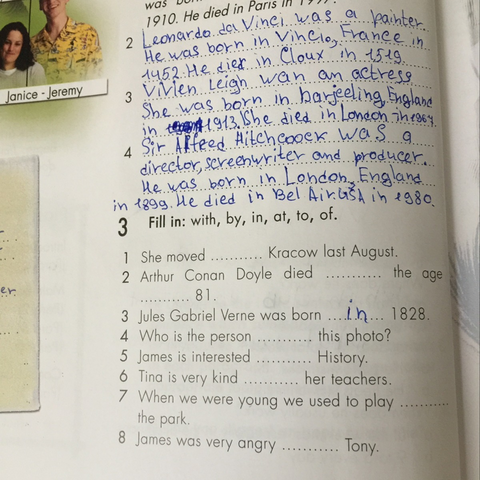 was born
1910. He died in Paris in
2 Leonardo da Vinci was a painter.
He was born in Vincio, France in
1452. He died in Cloux in 1519.
3 Vivien Leigh wan an actress
She was born in Darjeeling, England
in 1913. She died in London in 1967.
4 Sir Alfred Hitchcock was a
director, screenwriter and producer.
He was born in London, England
in 1899. He died in Bel Air, USA in 1980.
Janice - Jeremy
3 Fill in: with, by, in, at, to, of.
1 She moved .......... Kracow last August.
2 Arthur Conan Doyle died ........... the age
.......... 81.
3 Jules Gabriel Verne was born ...in... 1828.
4 Who is the person .......... this photo?
5 James is interested .......... History.
6 Tina is very kind .......... her teachers.
7 When we were young we used to play ..........
the park.
8 James was very angry ........... Tony.